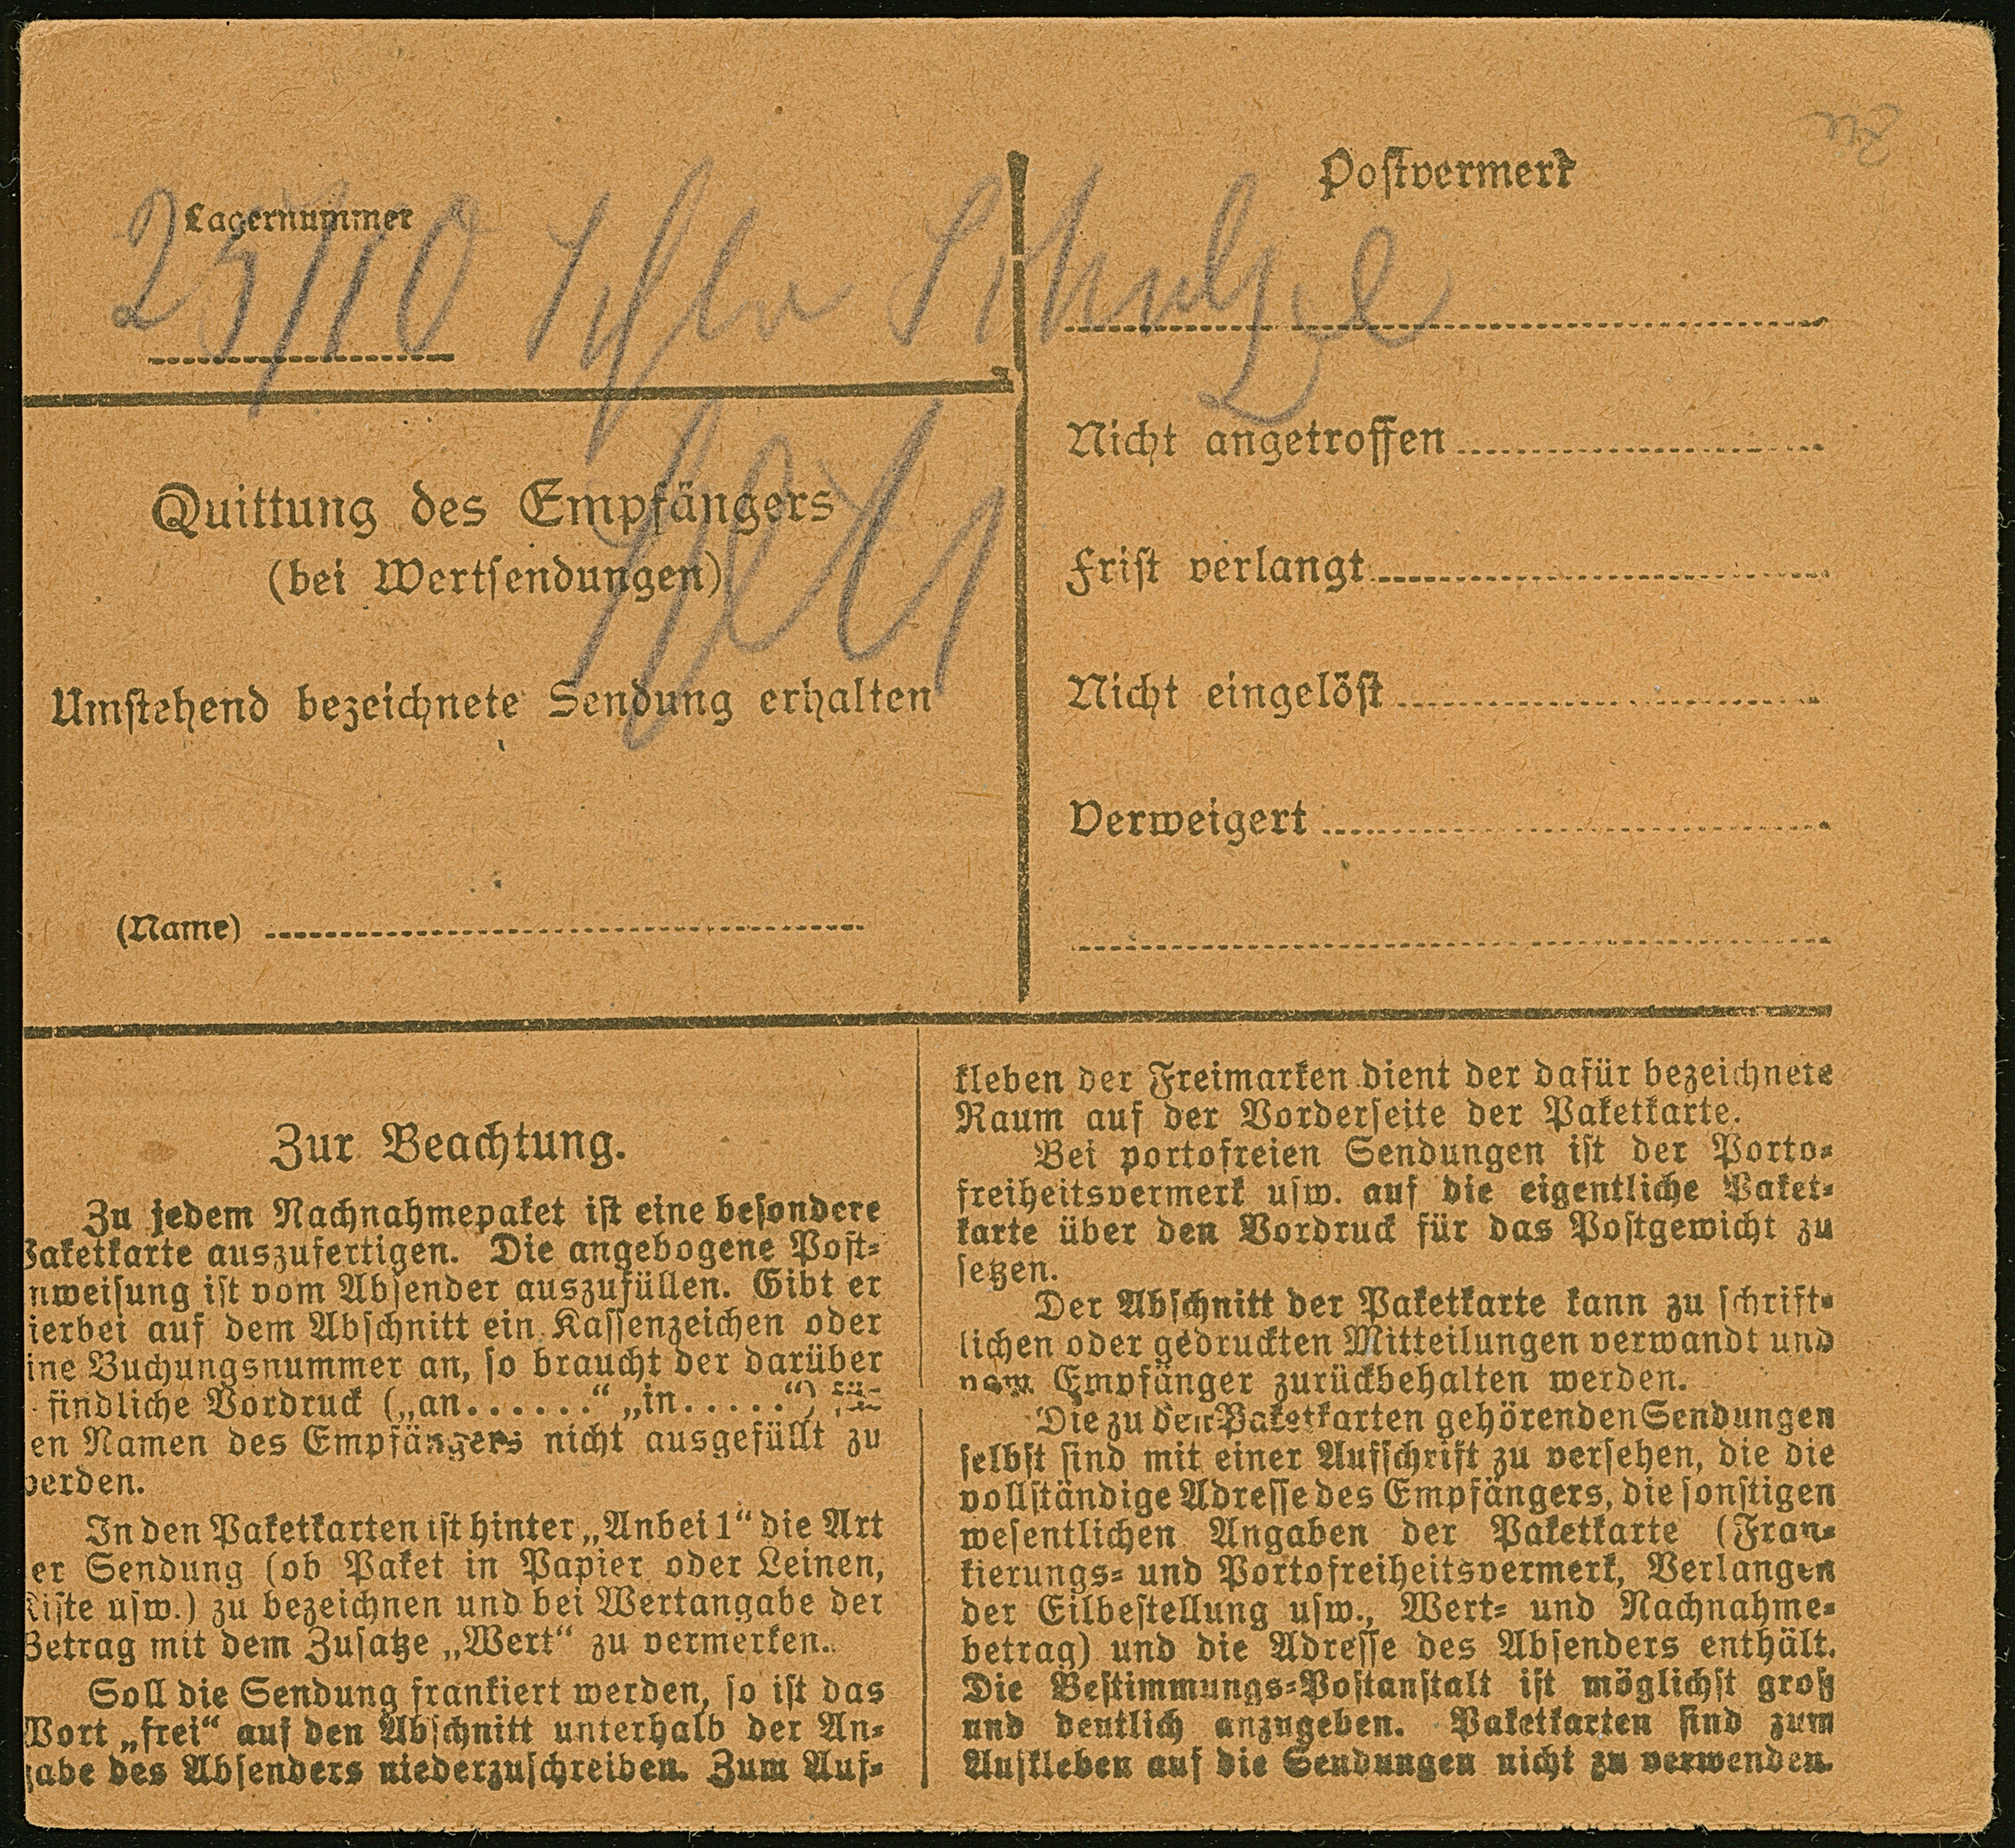 Lagernummer
25/10 Schulze
Quittung des Empfängers
(bei Wertsendungen)
Umstehend bezeichnete Sendung erhalten
(Name)
Postvermerk
Nicht angetroffen
Frist verlangt
Nicht eingelöst
Verweigert
Zur Beachtung.
Zu jedem Nachnahmepaket ist eine besondere
Paketkarte auszufertigen. Die angebogene Post-
nweisung ist vom Absender auszufüllen. Gibt er
ierbei auf dem Abschnitt ein Kassenzeichen oder
ine Buchungsnummer an, so braucht der darüber
findliche Vordruck („an......“ „in.....“) für
en Namen des Empfängers nicht ausgefüllt zu
werden.
In den Paketkarten ist hinter „Anbei 1“ die Art
er Sendung (ob Paket in Papier oder Leinen,
Kiste usw.) zu bezeichnen und bei Wertangabe der
Betrag mit dem Zusatze „Wert“ zu vermerken.
Soll die Sendung frankiert werden, so ist das
Wort „frei“ auf den Abschnitt unterhalb der An-
gabe des Absenders niederzuschreiben. Zum Auf-
kleben der Freimarken dient der dafür bezeichnete
Raum auf der Vorderseite der Paketkarte.
Bei portofreien Sendungen ist der Porto-
freiheitsvermerk usw. auf die eigentliche Paket-
karte über den Vordruck für das Postgewicht zu
setzen.
Der Abschnitt der Paketkarte kann zu schrift-
lichen oder gedruckten Mitteilungen verwandt und
vom Empfänger zurückbehalten werden.
Die zu den Paketkarten gehörenden Sendungen
selbst sind mit einer Aufschrift zu versehen, die die
vollständige Adresse des Empfängers, die sonstigen
wesentlichen Angaben der Paketkarte (Fran-
kierungs- und Portofreiheitsvermerk, Verlangen
der Eilbestellung usw., Wert- und Nachnahme-
betrag) und die Adresse des Absenders enthält.
Die Bestimmungs-Postanstalt ist möglichst groß
und deutlich anzugeben. Paketkarten sind zum
Aufkleben auf die Sendungen nicht zu verwenden.